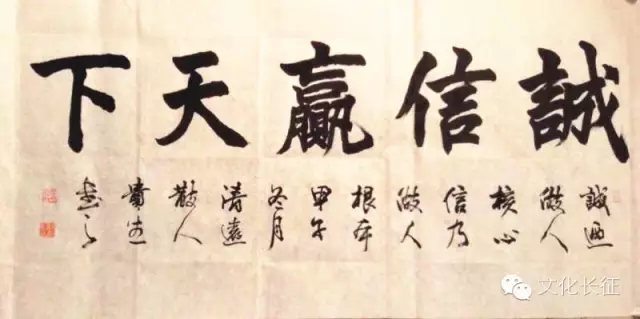 誠信贏天下
誠迺
做人
核心
信乃
做人
根本
甲午
冬月
清遠
散人
書之
文化长征